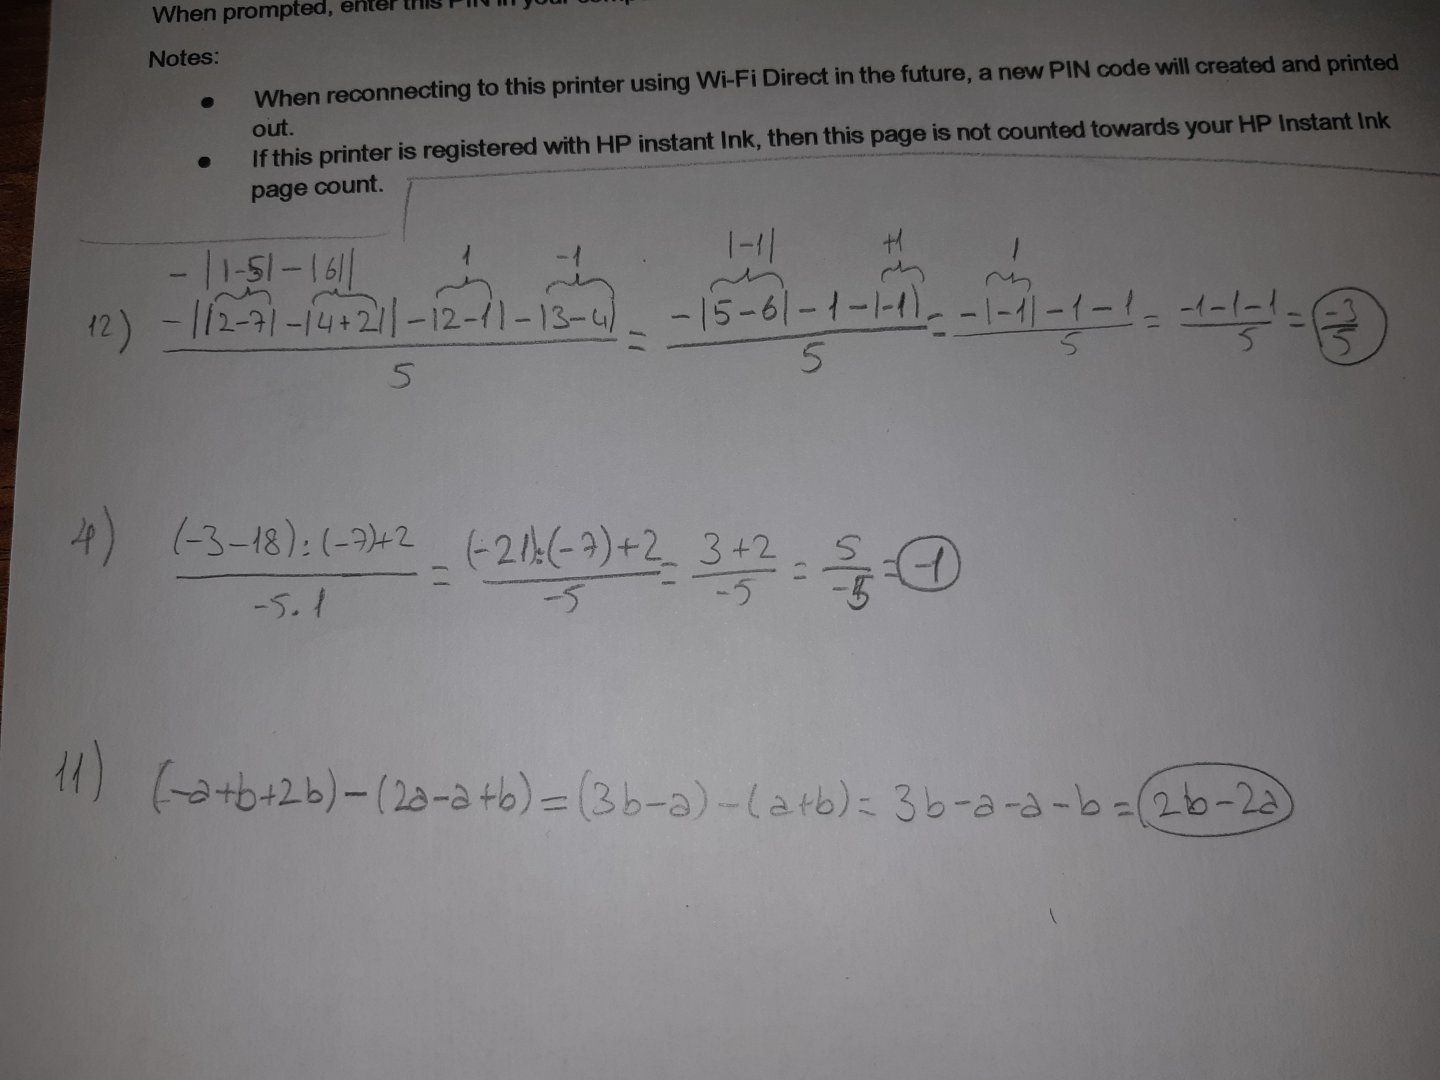 When prompted, enter this PIN in your
Notes:
• When reconnecting to this printer using Wi-Fi Direct in the future, a new PIN code will created and printed
out.
• If this printer is registered with HP instant Ink, then this page is not counted towards your HP Instant Ink
page count.
-||-5|-|6|| 1 -1 |-1| +1 1
12) (-||2-7|-|4+2||-|2-1|-|3-4|)/5 = (-|5-6|-1-|-1|)/5 = (-|-1|-1-1)/5 = (-1-1-1)/5 = -3/5
4) ((-3-18):(-7)+2)/(-5.1) = ((-21):(-7)+2)/-5 = (3+2)/-5 = 5/-5 = -1
11) (-a+b+2b)-(2a-a+b)=(3b-a)-(a+b)= 3b-a-a-b=2b-2a